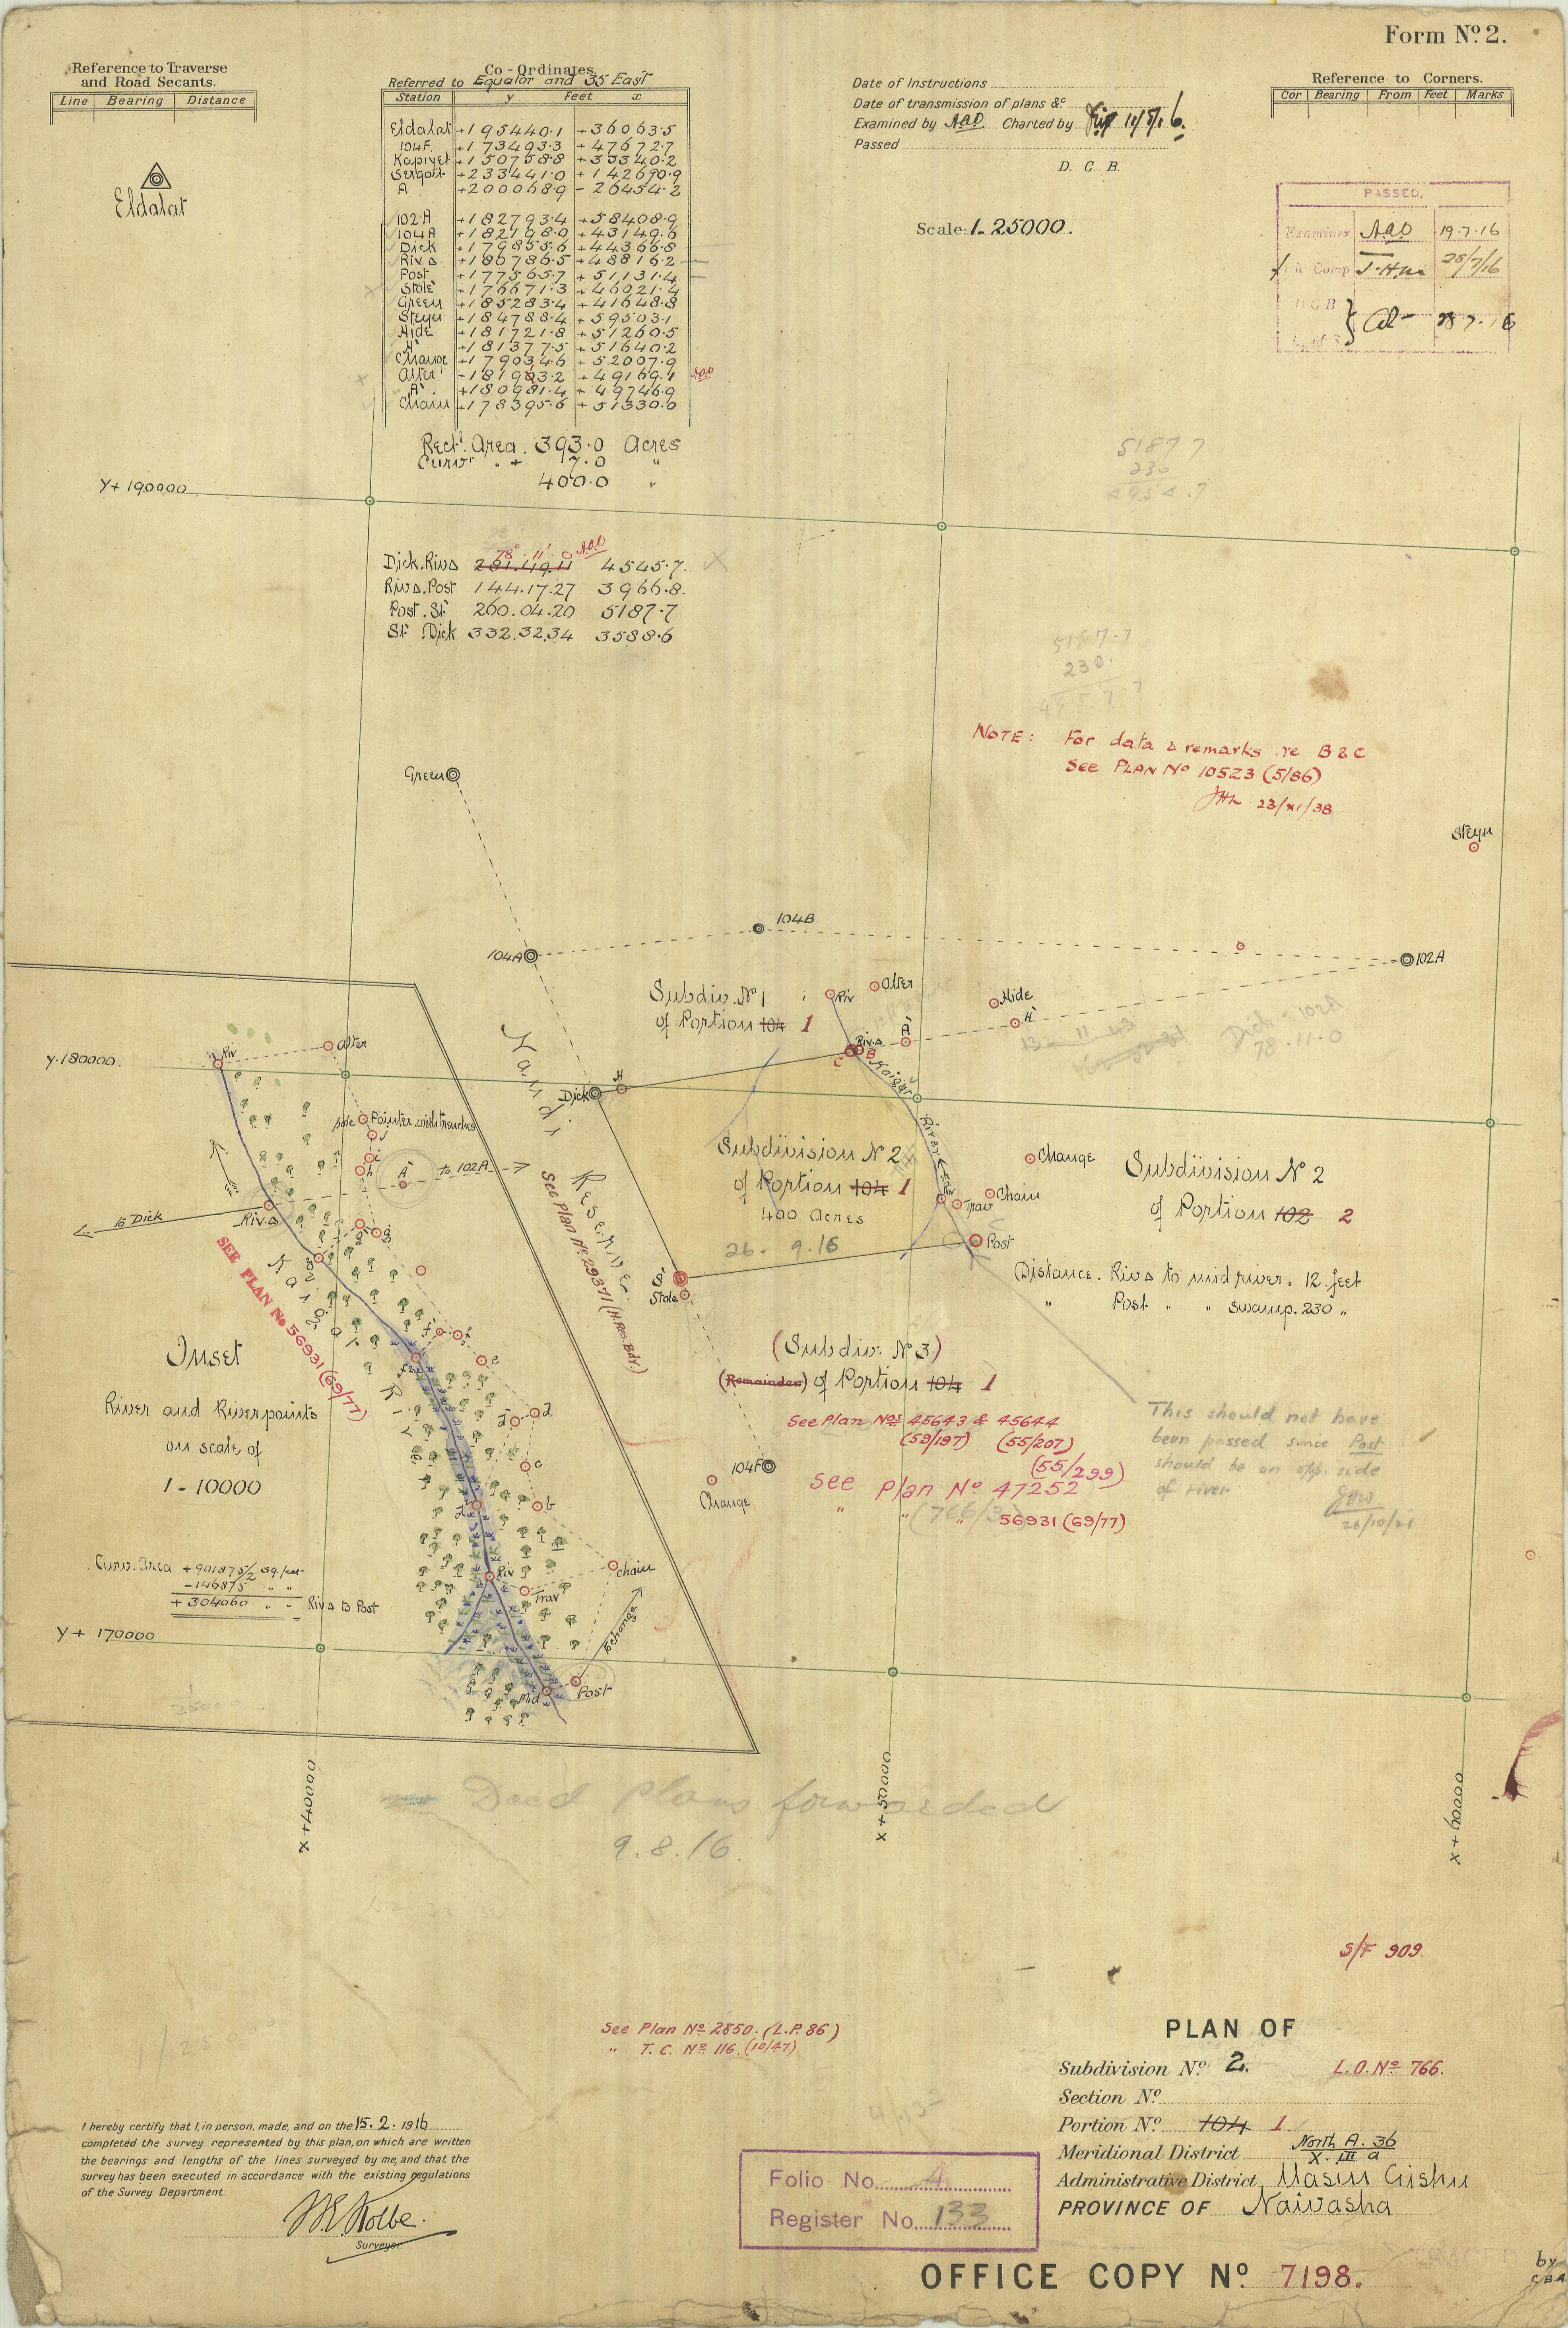 Form Nº 2.
Reference to Traverse
and Road Secants.
Line Bearing Distance
Eldalat
Co-Ordinates
Referred to Equator and 35 East
Station y Feet x
Eldalat +195440.1 +36063.5
104F. +173493.3 +47672.7
Kapiyet +150758.8 +33340.2
Sergoit +233441.0 +142690.9
A +200068.9 -26454.2
102A +182793.4 +58408.9
104A +182198.0 +43149.6
Dick +179855.6 +44366.8
Riv.Δ +180786.5 +48816.2
Post +177565.7 +51131.4
Stole +176671.3 +46021.4
Green +185283.4 +41648.8
Steyn +184788.4 +59503.1
Hide +181721.8 +51260.5
H' +181377.5 +51640.2
Change +179034.6 +52007.9
Alter +181903.2 +49169.1 AAD
A' +180981.4 +49746.9
Chain +178395.6 +51330.0
Rectl. Area. 393.0 Acres
Curvr " + 7.0 "
400.0 "
Date of Instructions
Date of transmission of plans &c
Examined by AAD Charted by 11/8/16.
Passed
D. C. B.
Scale: 1-25000.
Reference to Corners.
Cor Bearing From Feet Marks
PASSED.
Examiner AAD 19.7.16
Comp 28/7/16
D C B 28.7.16
5187.7
230
Y+190000
78° 11' 0 AAD
Dick.RivΔ 281.49.11 4545.7
RivΔ.Post 144.17.27 3966.8
Post.St' 260.04.20 5187.7
St' Dick 332.32.34 3588.6
5187.7
230.
4957.7
NOTE: For data & remarks re B & C
See PLAN Nº 10523 (5/86)
23/XI/38
Green
Steyn
104B
104A
102A
Subdiv. Nº 1
of Portion 104 1
Riv
Alter
Hide
H'
A'
Riv.Δ
B
C
Kaigat
River
Dick - 102A
78.11.0
Dick
H
Nandi
Reserve
See Plan Nº 29371 (N.Res.Bdy.)
Subdivision Nº 2
of Portion 104 1
400 Acres
26. 9.16
Change
Chain
Trav
Post
Subdivision Nº 2
of Portion 102 2
Distance. RivΔ to mid river = 12 feet
" Post " " Swamp. 230 "
S'
Stole
(Subdiv: Nº 3)
(Remainder) of Portion 104 1
See Plan Nos 45643 & 45644
(59/197) (55/207)
(55/299)
See Plan Nº 47252
(766/3)
" " " 56931 (69/77)
This should not have
been passed since Post
should be on opp. side
of river
104F
Change
y.180000.
Riv
Alter
Pointer with trenches
j
i
h
A'
to 102A
to Dick
Riv.Δ
g
SEE PLAN Nº 56931 (69/77)
Kaigat
River
Inset
River and Riverpoints
on scale of
1-10000
f
e
d
c
b
Chain
Riv
Trav
to Change
Mid
Post
Curv. Area +901875/2 sq. feet
-146875 " "
+304060 " " RivΔ to Post
Y+ 170000
x+40000
x+50000
x+60000
Deed Plans forwarded
9.8.16.
S/F 909
See Plan Nº 2850. (L.P. 86)
" T.C. Nº 116. (10/47)
1/25000
PLAN OF
Subdivision Nº 2. L.O. Nº 766.
Section Nº
Portion Nº 104 1.
Meridional District North A. 36
X. III a
Administrative District Uasin Gishu
PROVINCE OF Naivasha
I hereby certify that I, in person, made, and on the 15.2.1916
completed the survey represented by this plan, on which are written
the bearings and lengths of the lines surveyed by me, and that the
survey has been executed in accordance with the existing regulations
of the Survey Department.
Kolbe.
Surveyor.
Folio No. 4
Register No. 133
OFFICE COPY Nº 7198.
by
C.B.A